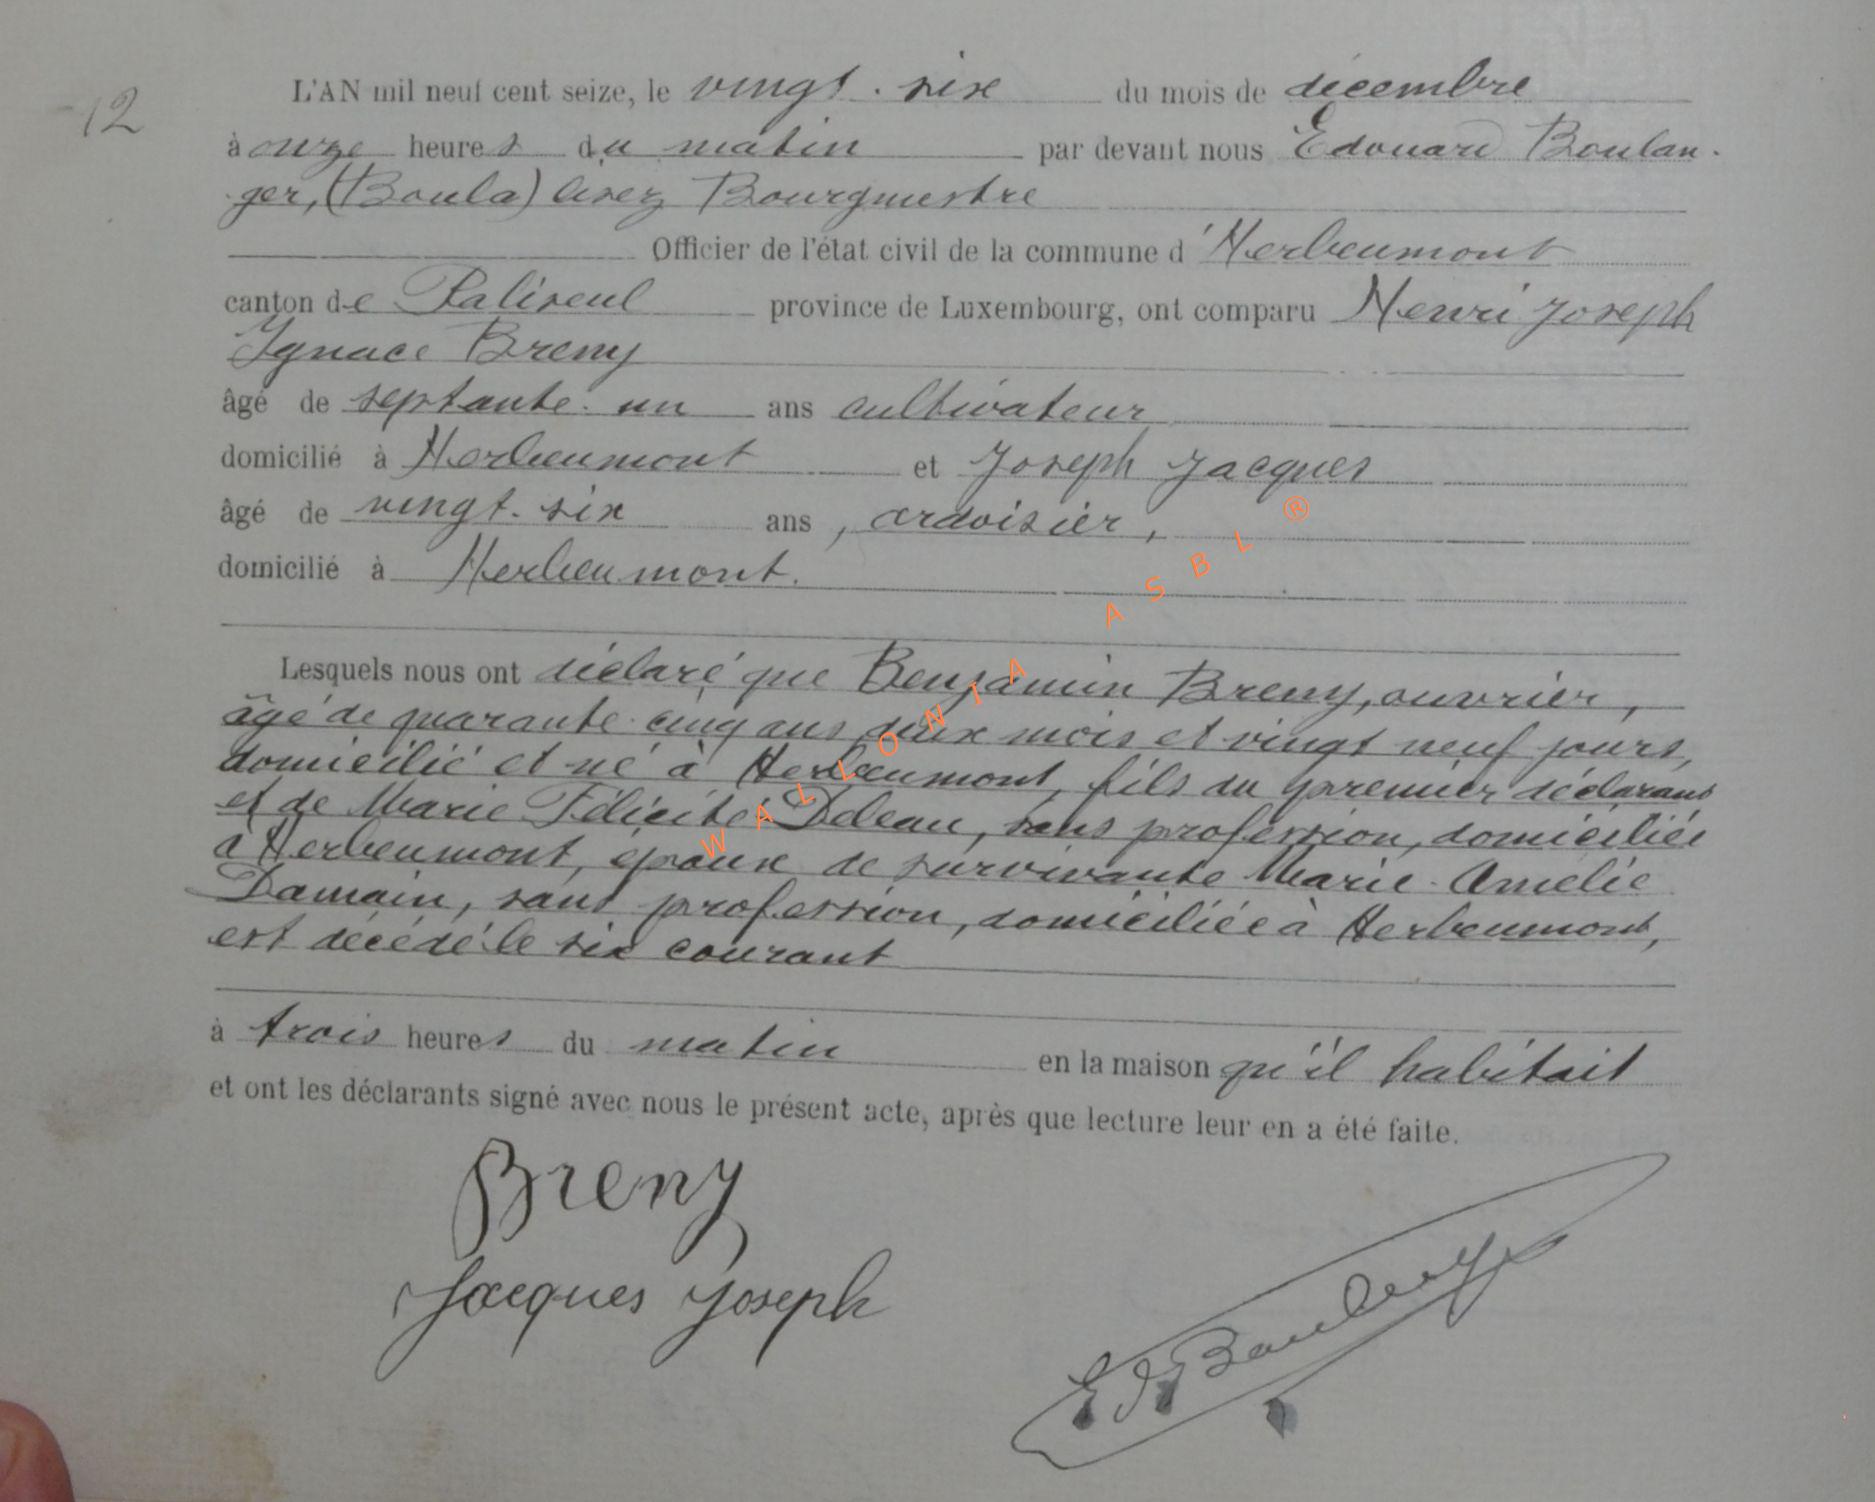 12
L'AN mil neuf cent seize, le vingt-six du mois de décembre
à onze heures du matin par devant nous Edouard Boulan-
ger, (Boula) lisez Bourgmestre
Officier de l'état civil de la commune d'Herbeumont
canton de Paliseul province de Luxembourg, ont comparu Henri Joseph
Ignace Breny
âgé de septante-un ans cultivateur
domicilié à Herbeumont et Joseph Jacques
âgé de vingt-six ans, ardoisier,
domicilié à Herbeumont.
Lesquels nous ont déclaré que Benjamin Breny, ouvrier,
âgé de quarante-cinq ans deux mois et vingt neuf jours,
domicilié et né à Herbeumont, fils du premier déclarant
et de Marie Félicité Deleau, sans profession, domiciliée
à Herbeumont, époux de survivante Marie-Amélie
Damain, sans profession, domiciliée à Herbeumont,
est décédé le six courant
à trois heures du matin en la maison qu'il habitait
et ont les déclarants signé avec nous le présent acte, après que lecture leur en a été faite.
Breny
Jacques Joseph
Ed Boulanger
WALLONIA ASBL ®